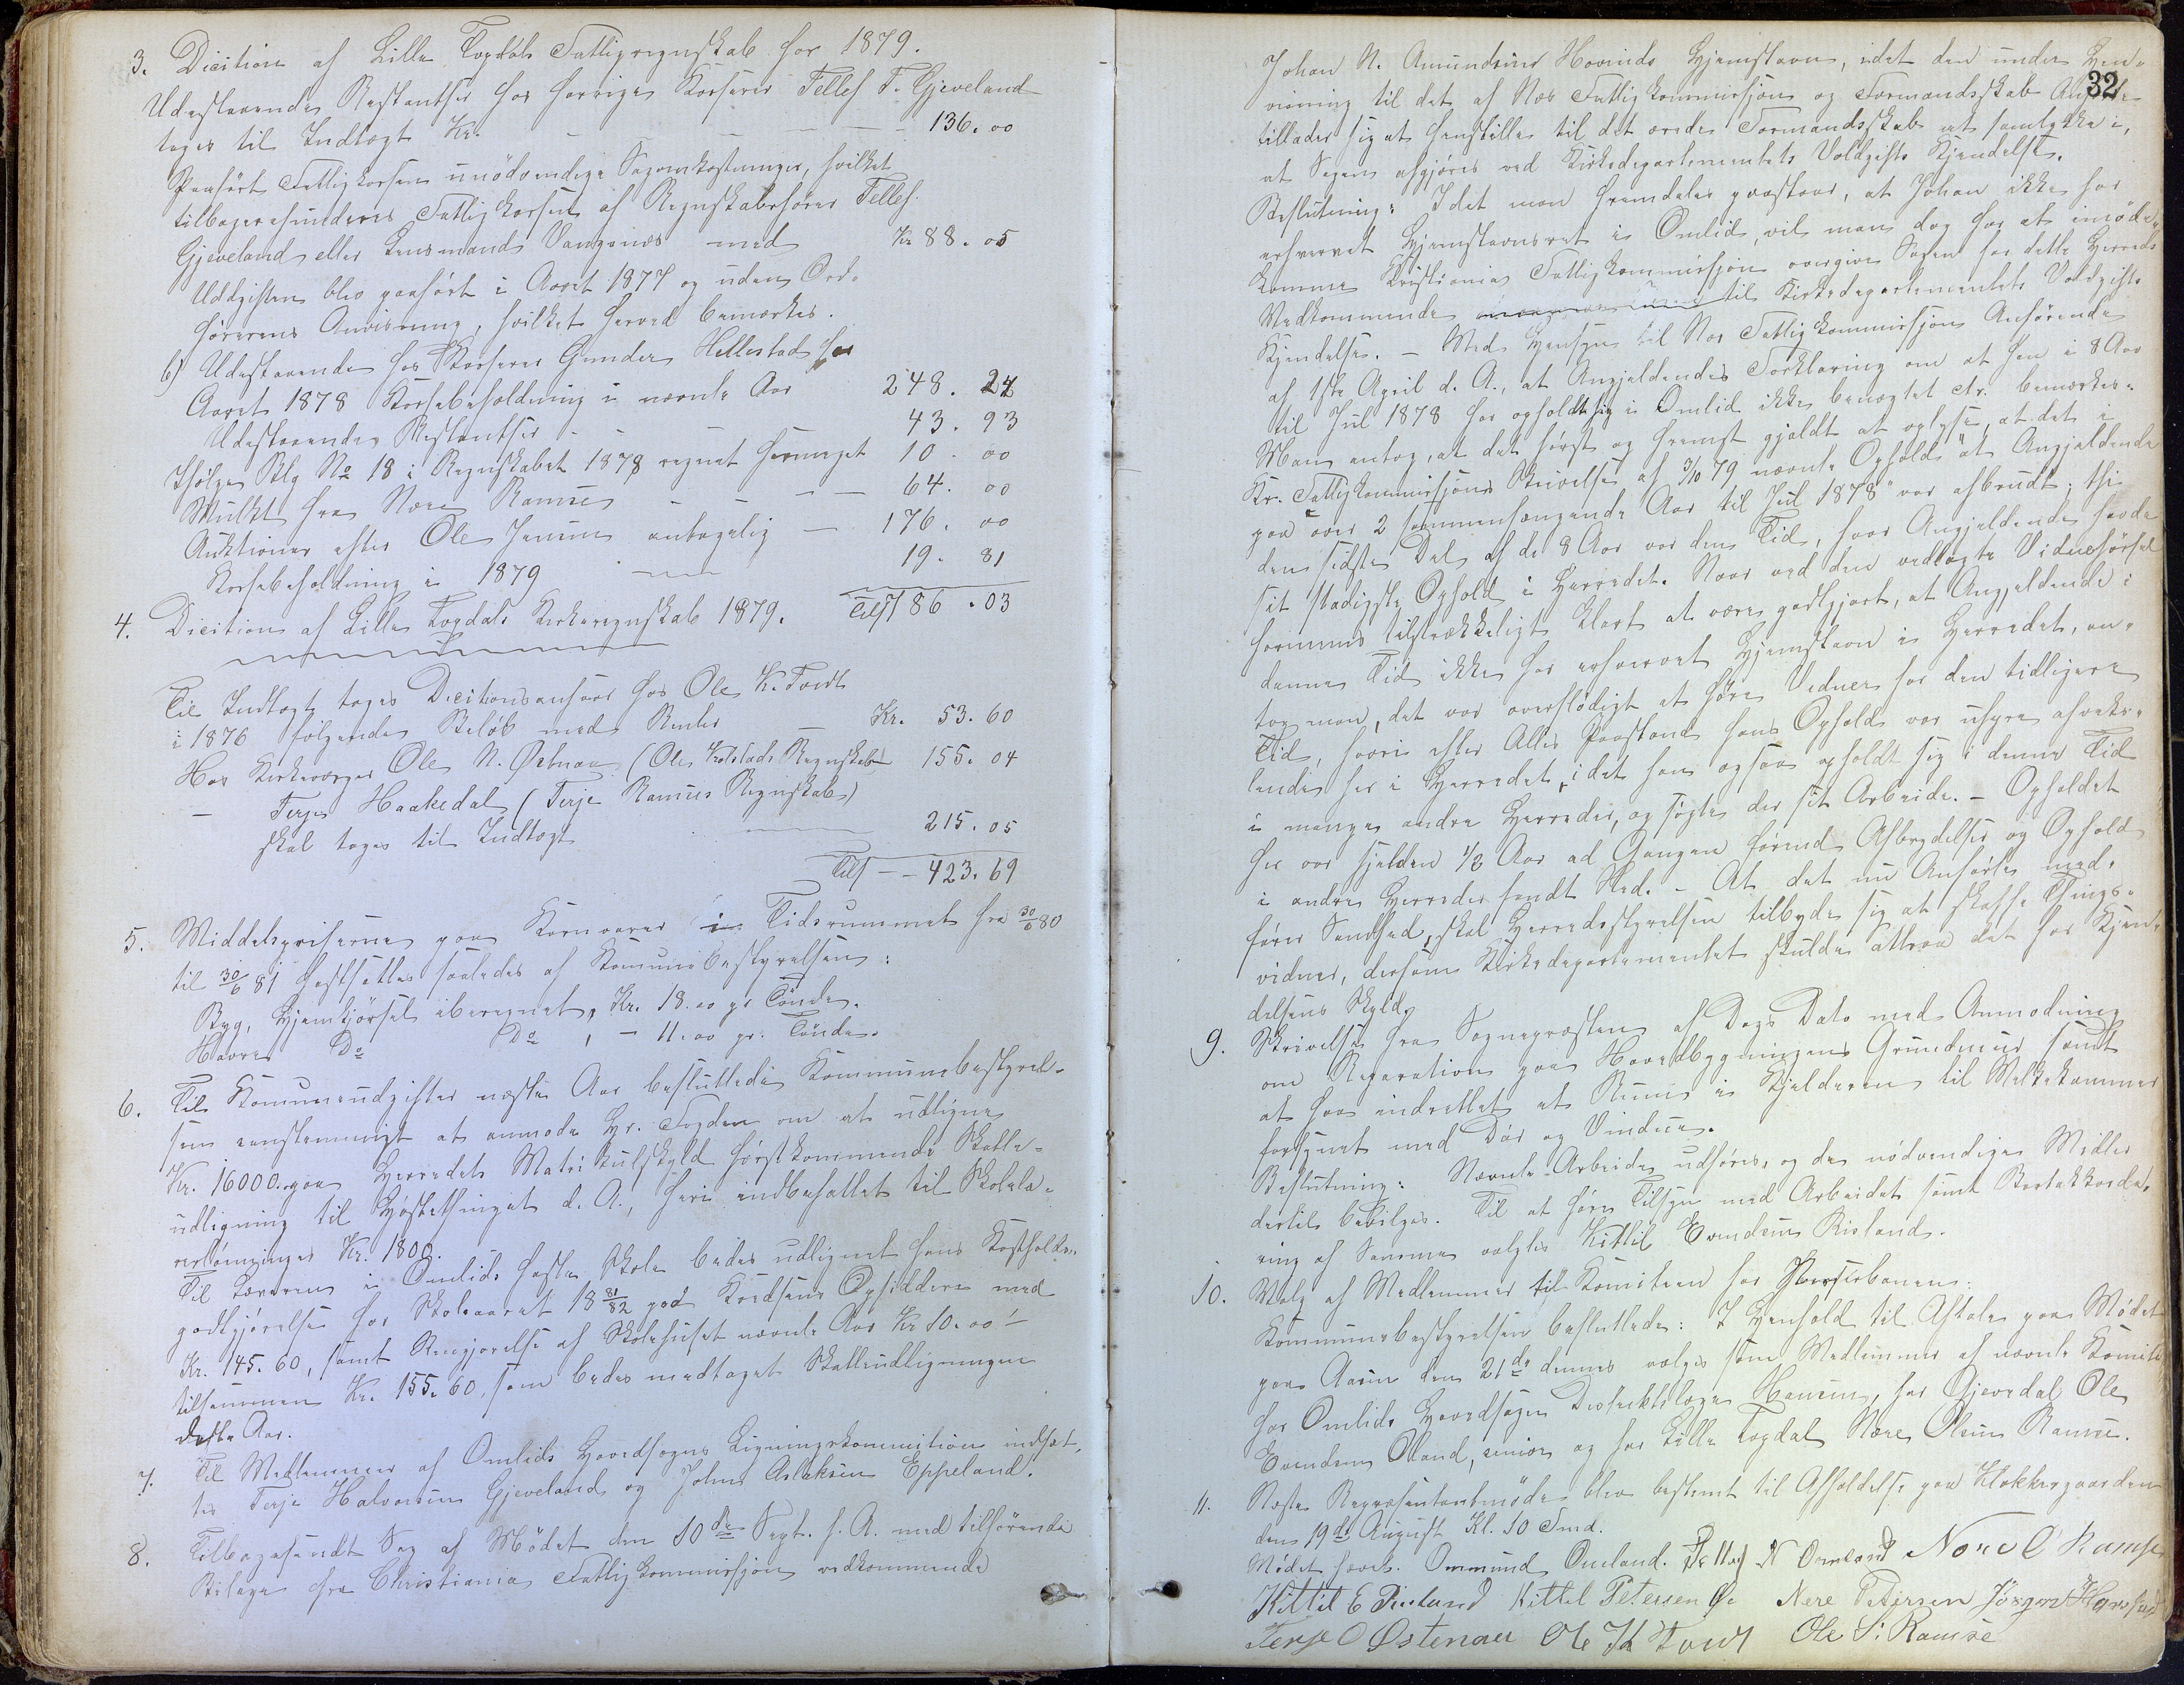 3. Dicition af Lille Togdals Fattigregnskab for 1879.
Udestaaende Restantser hos forrige Kasserer Tellef T. Gjeveland
tages til Indtægt Kr. — — — — 136.00
Paaført Fattigkassen unödvendige Sagomkostninger, hvilket
tilbagerefunderes Fattigkassen af Regnskabsfører Tellef
Gjeveland eller Lensmand Vangsnes med Kr 88.05
Uddgiften blev paaført i Aaret 1877 og uden Ord-
førerens Anvisning, hvilket herved bemærkes.
b) Udestaaende hos Kasserer Gunder Hellestad for
Aaret 1878 Kassebeholdning i nævnte Aar 248.24
Udestaaende Restantser - - 43.93
Ifølge Blg No 18 i Regnskabet 1878 regnet formeget 10.00
Mulkt fra Nere Ramse - - - 64.00
Auktioner efter Ole Jensen antagelig — 176.00
Kassebeholdning i 1879 — 19.81
Tils 786.03
4. Dicition af Lille Togdals Kirkeregnskab 1879.
Til Indtægt tages Decitionsansvar hos Ole K. Tveit
i 1876 følgende Beløb med Renter — Kr. 53.60
Hos Kirkeværge Ole N. Østenaa (Ole Kolstads Regnskab) 155.04
— Terje Haakedal (Terje Ramses Regnskab)
skal tages til Indtægt — 215.05
Tils -- 423.69
5. Middelspriserne paa Kornvarer i Tidsrummet fra 30/6 80
til 30/6 81 fastsattes saaledes af Komunebestyrelsen:
Byg, Hjemkjörsel iberegnet, Kr. 18.00 pr Tönde.
Havre Do Do, - 11.00 pr. Tönde.
6. Til Komuneudgifter næste Aar besluttede Kommunebestyrel-
sen eenstemmigt at anmode Hr. Fogden om at udligne
Kr. 16000. paa Herredets Matrikulskyld førstkommende Skatte-
udligning til Høstethinget d. A., heri indbefattet til Skolelæ-
rerlønninger Kr. 1800.
Til Læreren i Omlids faste Skole bedes udlignet hans Kostholds-
godtgjörelse for Skoleaaret 18 81/82 paa Kredsens Opsiddere med
Kr. 145.60, samt Rengjørelse af Skolehuset nævnte Aar Kr 10.00 -
tilsammen Kr. 155.60, som bedes medtaget Skatteudligningen
dette Aar.
7. Til Medlemmer af Omlids Hovedsogns Ligningskommition indsat-
tes Terje Halvorsen Gjeveland og Johns Aslaksen Eppeland.
8. Tilbagesendt Sag af Mødet den 10de Sept. f. A. med tilhørende
Bilage fra Christiania Fattigkommissjon vedkommende
32
Johan N. Amundsens Hovinds Hjemstavn, idet den under Hen-
visning til det af Næs Fattigkommissjon og Formandsskab Anførte
tillader sig at henstille til det ærede Formandsskab at samtykke i,
at Sagen afgjöres ved Kirkedepartementets Voldgifts Kjendelse.
Beslutning: Idet man fremdeles paastaar, at Johan ikke har
erhvervet Hjemstavnsret i Omlid, vil man dog for at imöde-
komme Kristiania Fattigkommissjon overgive Sagen for dette Herreds
Vedkommende til Kirkedepartementets Voldgifts
Kjendelse. — Med Hensyn til Næs Fattigkommissjons Anförende
af 1ste April d. A., at Angjeldendes Forklaring om at han i 8 Aar
til Jul 1878 har opholdt sig i Omlid ikke benægtet etc. bemærkes:
Man antog, at det først og fremst gjaldt at oplyse, at det i
Kr. Fattigkommissjons Skrivelse af 3/10 79 nævnte Ophold "at Angjeldende
paa over 2 sammenhængende Aar til Jul 1878" var afbrudt; thi
den sidste Del af de 8 Aar var den Tid, hvor Angjeldende havde
sit stadigste Ophold i Herredet. Naar ved den vedlagte Vidneførsel
formenes tilstrækkeligt klart at være godtgjort, at Angjeldende i
denne Tid ikke har erhvervet Hjemstavn i Herredet, an-
tog man, det var overflödigt at føre Vidner for den tidligere
Tid, hvori efter Alles Paastand hans Ophold var uhyre afveks-
lende her i Herredet, idet han ogsaa opholdt sig i denne Tid
i mange andre Herreder, og søgte der sit Arbeide. — Opholdet
her var sjelden 1/2 Aar ad Gangen førend Afbrydelser og Ophold
i andre Herreder fandt Sted. — At det nu Anførte med-
fører Sandhed, skal Herredsstyrelsen tilbyde sig at skaffe Things-
vidner, dersom Kirkedepartementet skulde attraa det for Kjen-
delsens Skyld.
9. Skrivelse fra Sognepræsten af Dags Dato med Anmodning
om Reparation paa Hovedbygningens Grundmur samt
at faa indrettet et Rum i Kjelderen til Melkekammer
forsynet med Dør og Vinduer.
Beslutning: Nævnte Arbeide udføres, og de nödvendige Midler
dertil bevilges. Til at føre Tilsyn med Arbeidet samt Bortakkorde-
ring af Samme valgtes Kittil Evendsen Risland.
10. Valg af Medlemmer til Komiteen for Vesterbanen:
Kommunebestyrelsen besluttede: I Henhold til Aftale paa Mödet
paa Aasen den 21de dennes vælges som Medlemmer af nævnte Komite
for Omlids Hovedsogn Distriktslæge Hansen, for Gjevedal Ole
Evendsen Oland, senior og for Lille Togdal Nere Olsen Ramse.
11. Næste Repræsentantmøde blev bestemt til Afholdelse paa Klokkergaarden
den 19de August Kl. 10 Fmd.
Mødet hævet. Ommund Omland. Tellef N Omland Nere O Ramse
Kittil E Risland Kittel Petersen Nere Petersen Jörgen Hansen
Terje O Østenaa Ole K Tveit Ole S. Ramse